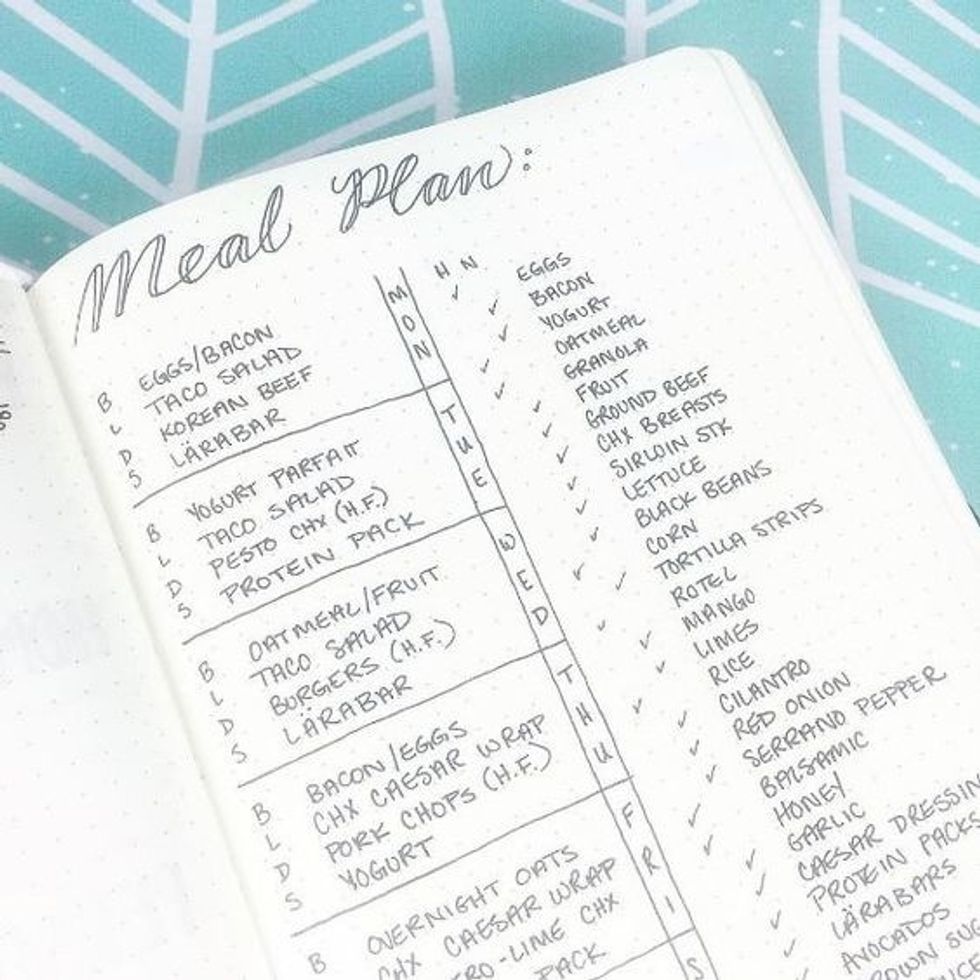 Meal Plan:
MON
B EGGS/BACON
L TACO SALAD
D KOREAN BEEF
S LÄRABAR
TUE
B YOGURT PARFAIT
L TACO SALAD
D PESTO CHX (H.F.)
S PROTEIN PACK
WED
B OATMEAL/FRUIT
L TACO SALAD
D BURGERS (H.F.)
S LÄRABAR
THU
B BACON/EGGS
L CHX CAESAR WRAP
D PORK CHOPS (H.F.)
S YOGURT
FRI
B OVERNIGHT OATS
CHX CAESAR WRAP
-LIME CHX
PACK
S
H N
EGGS
BACON
YOGURT
OATMEAL
GRANOLA
FRUIT
GROUND BEEF
CHX BREASTS
SIRLOIN STK
LETTUCE
BLACK BEANS
CORN
TORTILLA STRIPS
ROTEL
MANGO
LIMES
RICE
CILANTRO
RED ONION
SERRANO PEPPER
BALSAMIC
HONEY
GARLIC
CAESAR DRESSIN
PROTEIN PACKS
LÄRABARS
AVOCADOS